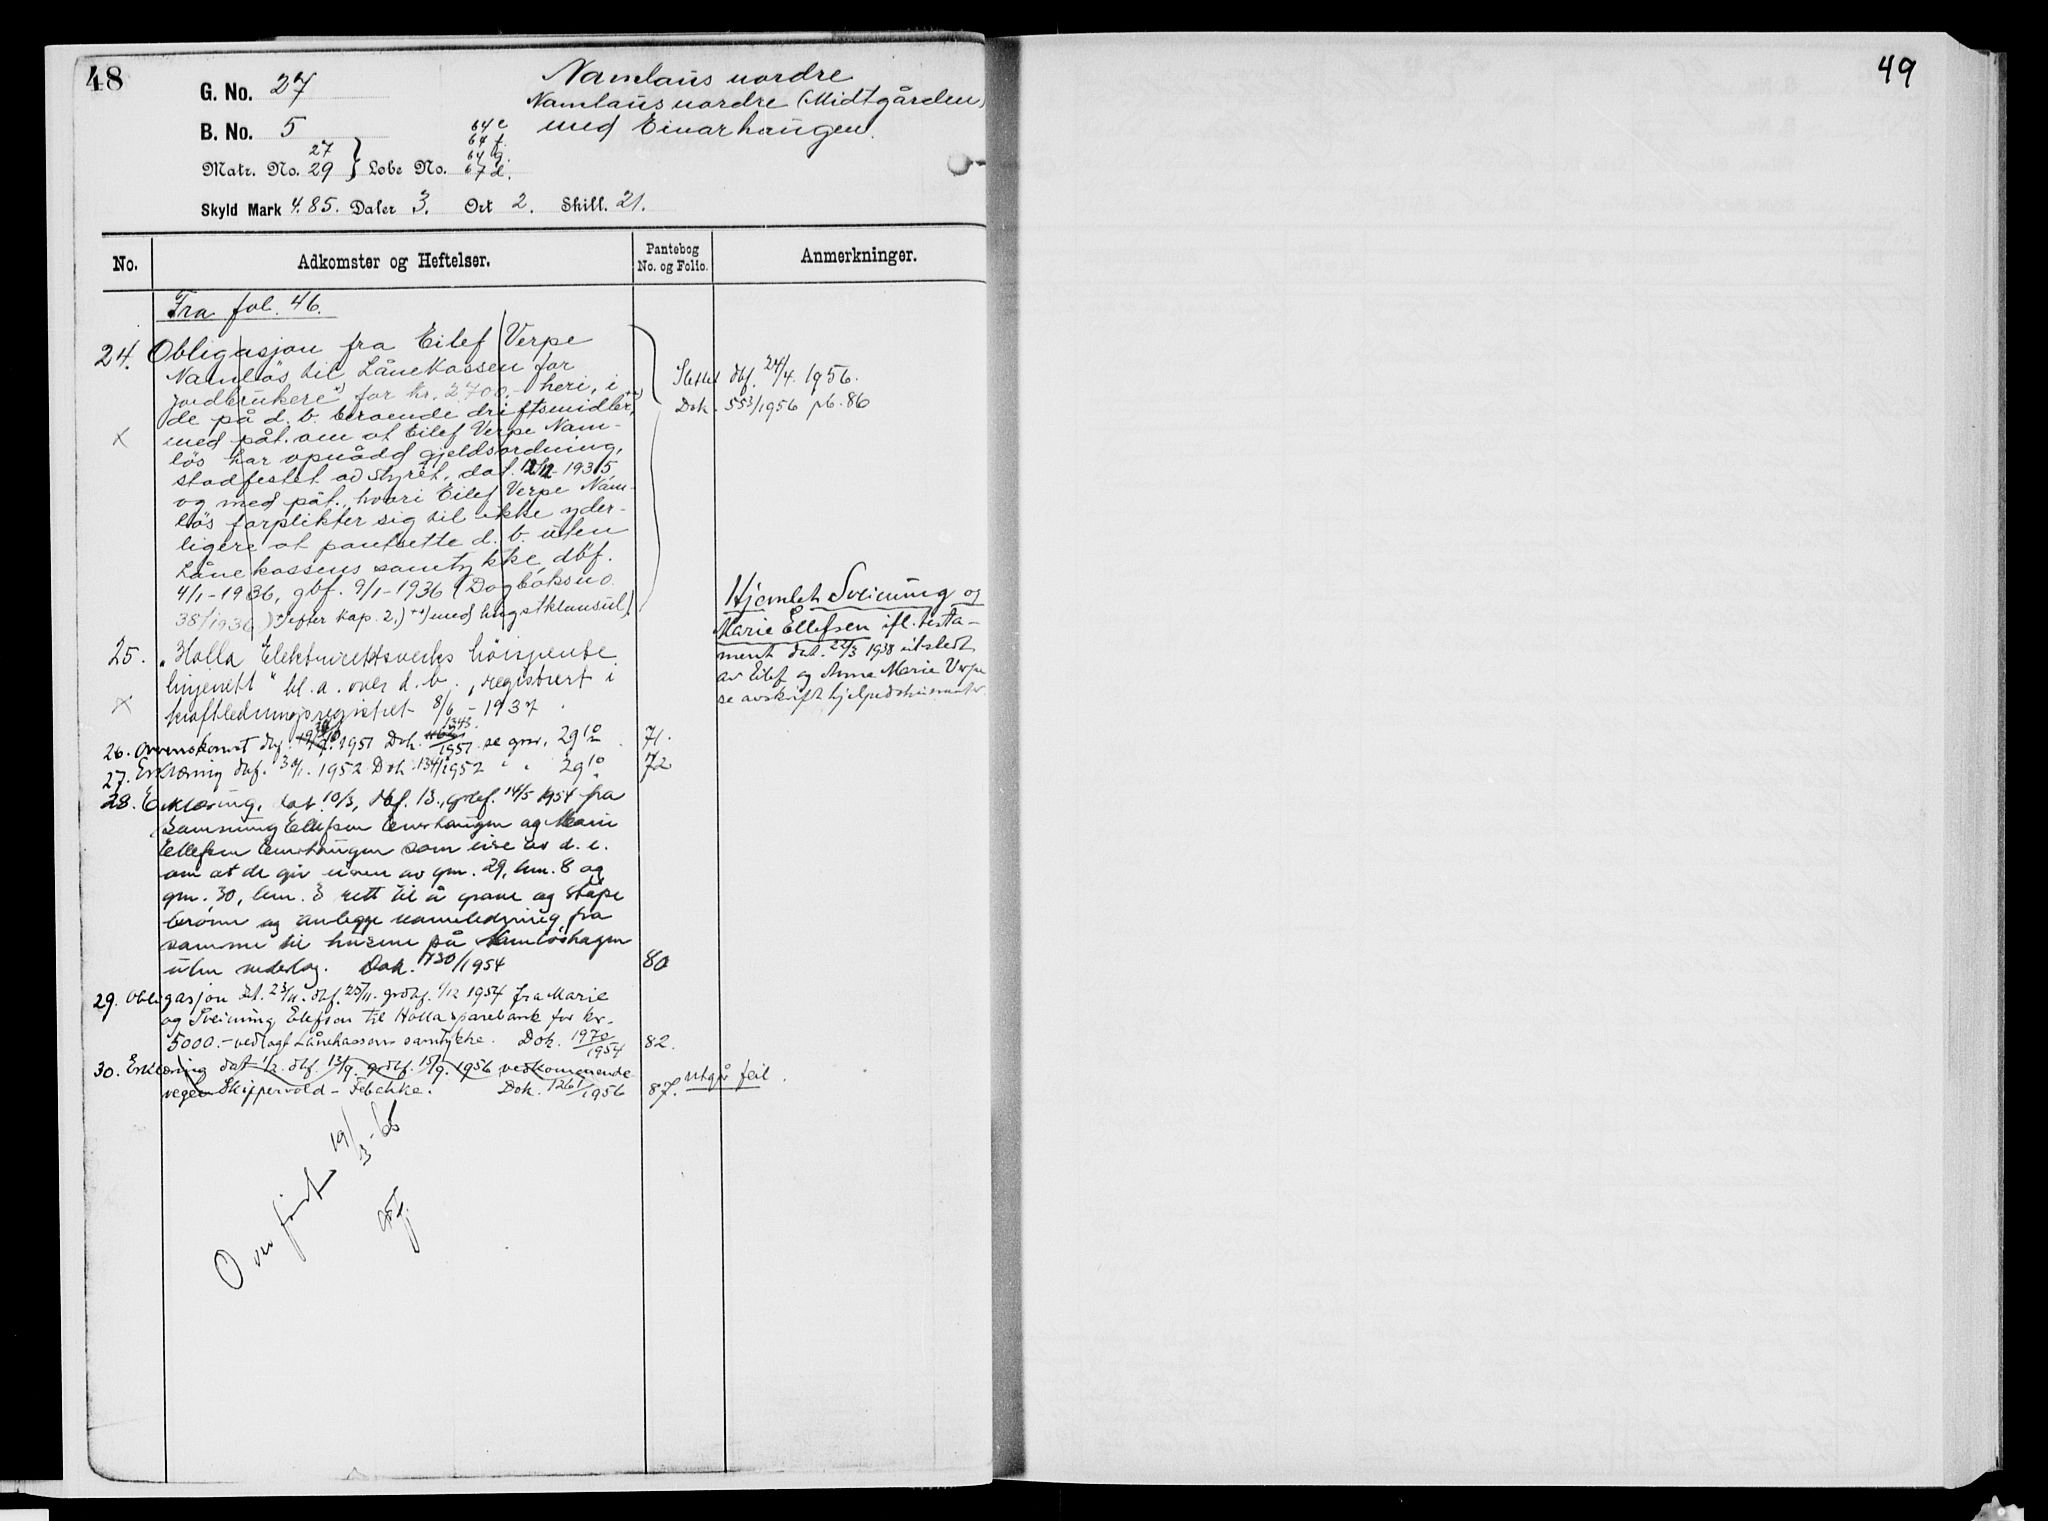 48
G. No. 27
Namlaus nordre
Namlaus nordre (Midtgården)
med Einarhaugen.
B. No. 5
Matr. No. 27 29 } Løbe No. 64 e 64 f. 64 g. 67 d.
Skyld Mark 4.85. Daler 3. Ort 2. Skill. 21.
No. Adkomster og Heftelser. Pantebog No. og Folio. Anmerkninger.
Fra fol. 46.
24. Obligasjon fra Eilef Verpe
Namløs til Lånekassen for
jordbrukere +) for kr. 2700.- heri, i
de på d. b. beroende driftsmidler, ++)
med påt. om at Eilef Verpe Nam-
løs har opnådd gjeldsordning,
stadfestet av styret, dat. 12/12-1935
og med påt., hvori Eilef Verpe Nam-
løs forplikter sig til ikke yder-
ligere at pantsette d. b. uten
Lånekassens samtykke, dbf.
4/1-1936, gbf. 9/1-1936 (Dagboksno.
38/1936) +) efter kap. 2.) ++) med hugstklausul).
Slettet dbf. 24/4. 1956.
Dok. 553/1956 pb. 86
Hjemlet Sveinung og
Marie Ellefsen ifl. testa-
ment dat. 22/3 1938 utstedt
av Eilef og Anne Marie Verpe
se avskrift hjelpedokumenter
25. "Holla Elektrisitetsverks høispente
linjenett" bl. a. over d. b., registrert i
kraftledningsregistret 8/6 - 1937.
26. Overenskomst dbf. 1951 Dok. 1343/1951 se gnr. 29 10 71.
27. Erklæring dbf. 30/1. 1952 Dok. 134/1952 " " 29 10 72
28. Erklæring, dat. 10/3, dbf. 13., grdbf. 14/5 1954 fra
Sveinung Ellefsen Einarhaugen og Marie
Ellefsen Einarhaugen som eire av d. e.
om at de gir eieren av gnr. 29, bnr. 8 og
gnr. 30, bnr. 3 rett til å grave og støpe
brønn og anlegge vannledning fra
samme til husene på Namløshagen
uten vederlag. Dok. 730/1954 80
29. Obligasjon dat. 23/11. dbf. 25/11. grdbf. 1/12 1954 fra Marie
og Sveinung Elefsen til Holla sparebank for kr.
5000.- vedlagt Lånekassens samtykke. Dok. 1970/1954 82.
30. Erklæring dat. 1/2. dbf. 13/9. grdbf. 15/9. 1956 vedkommende
vegen Skippervold - Febakke. Dok. 1261/1956 87. utgår feil.
Overført 19/3-66
49